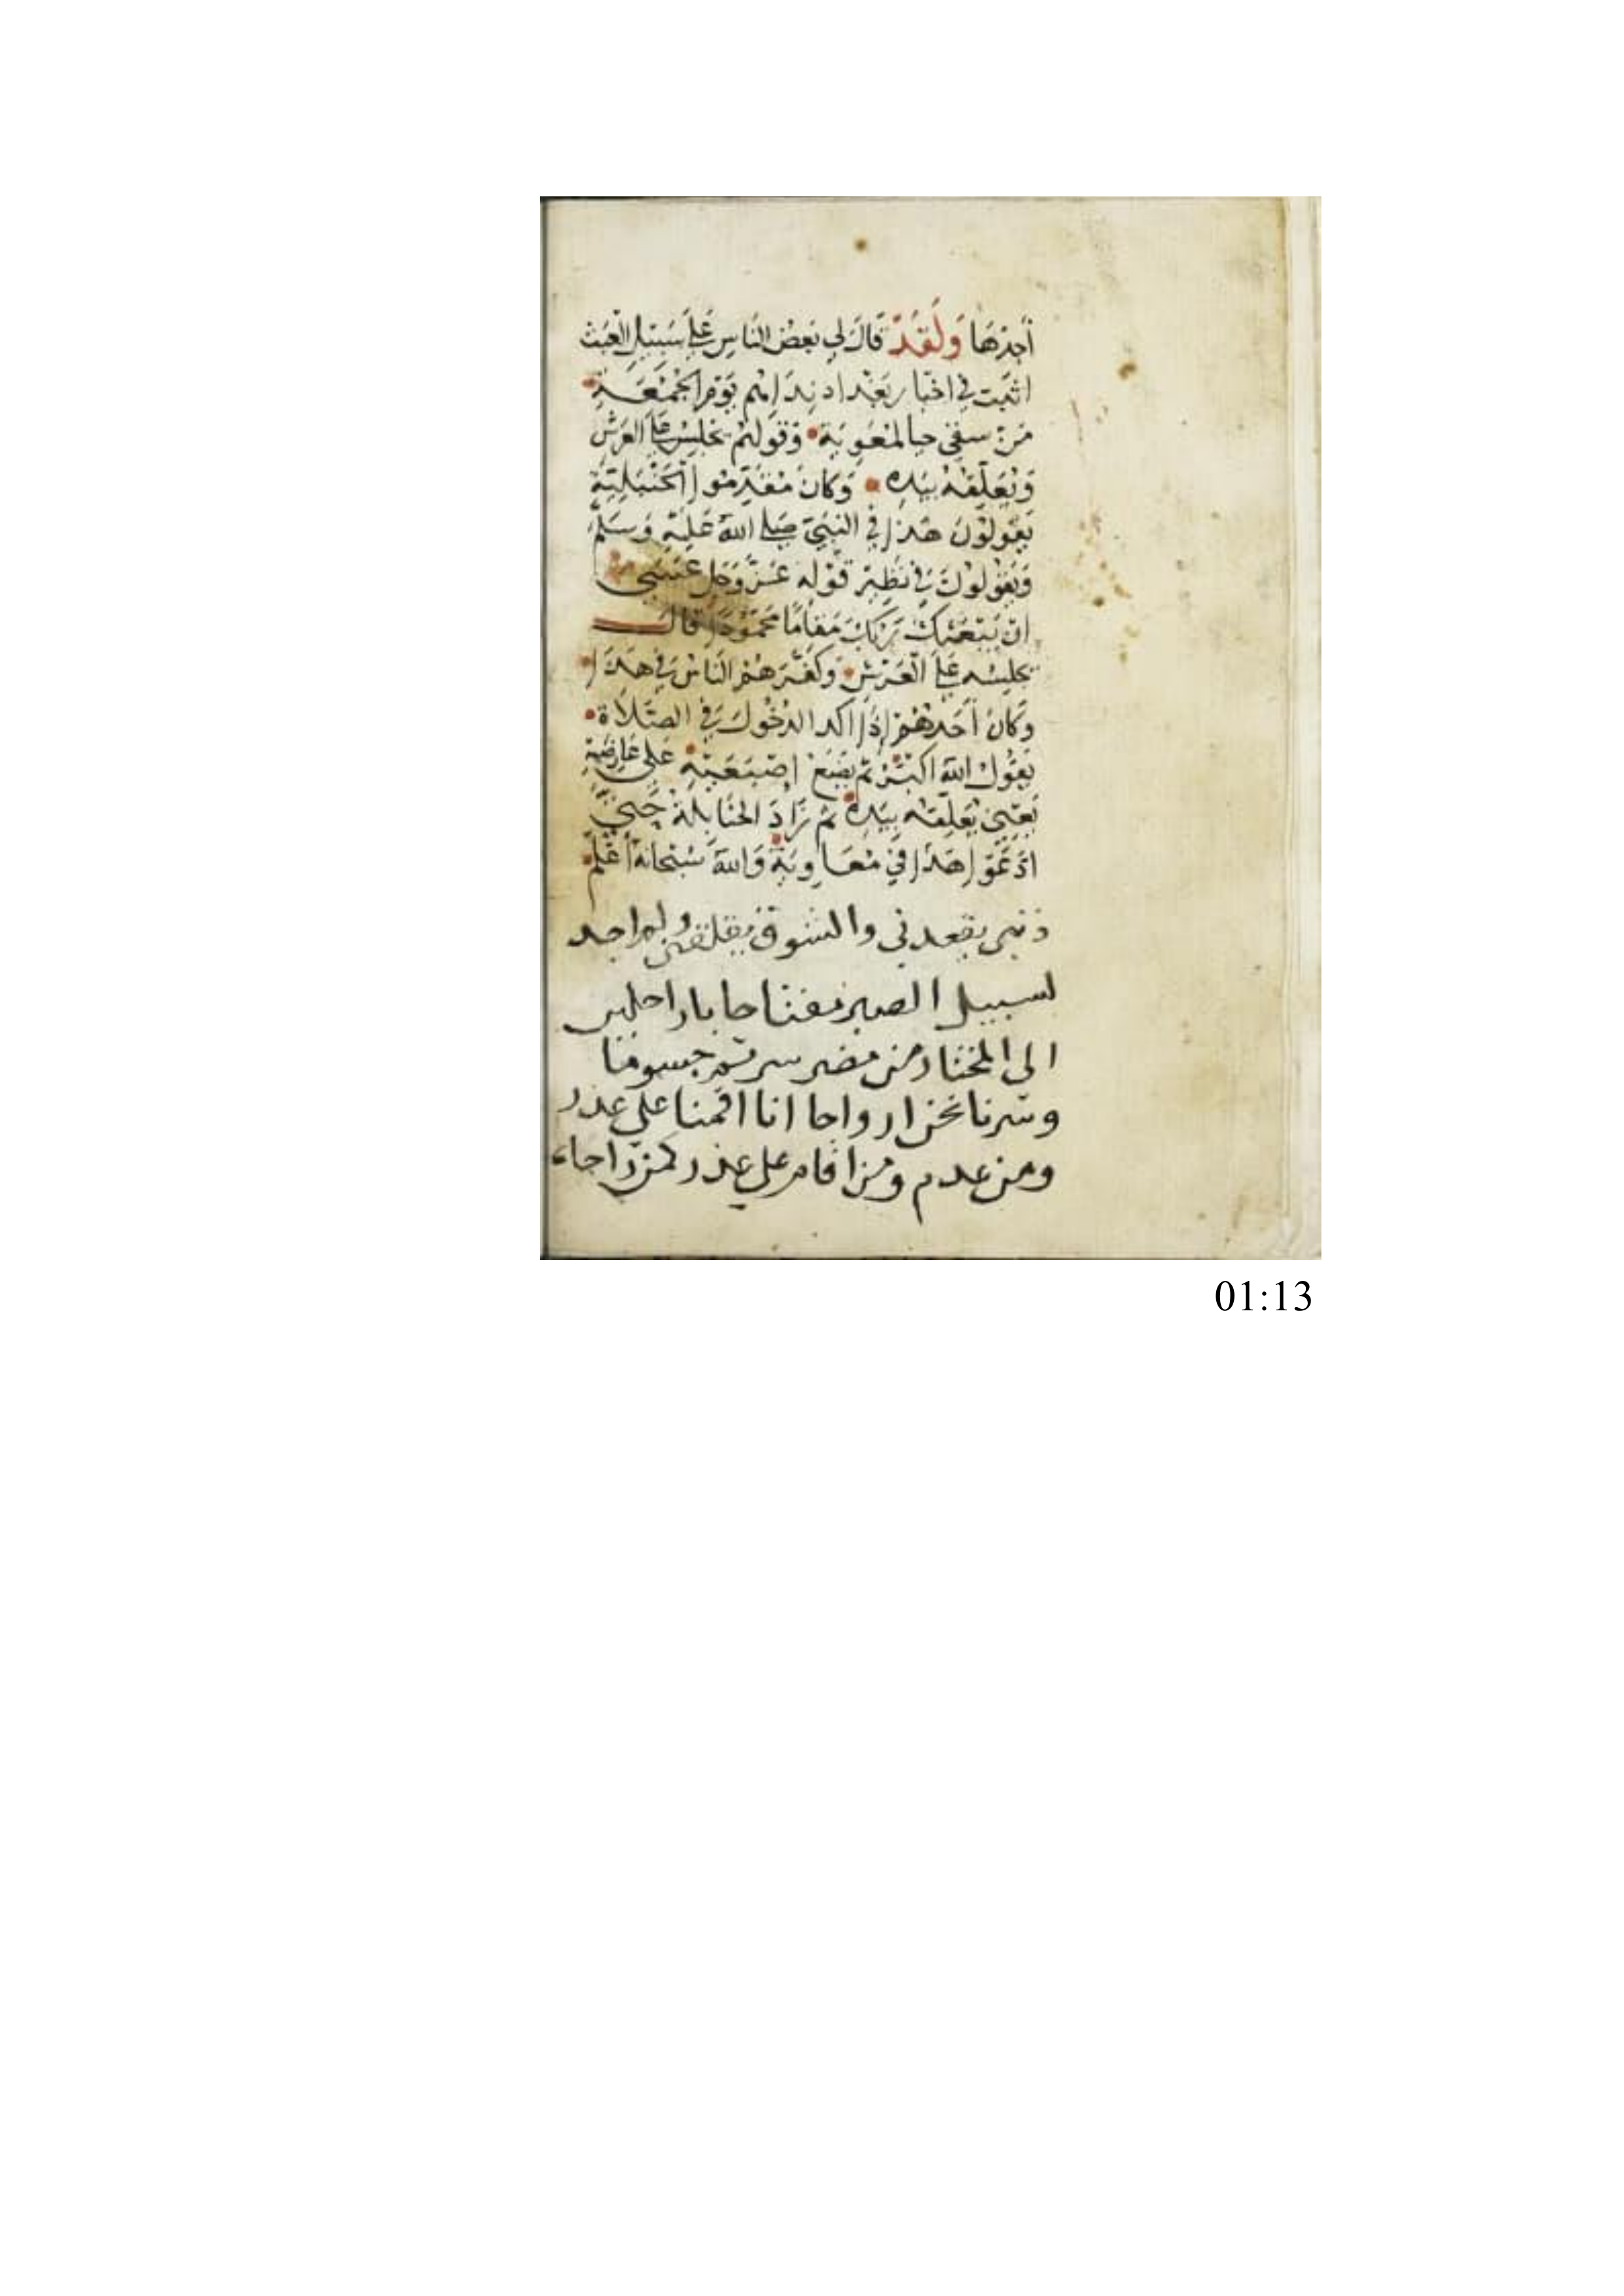 أجدها ولقد قال لي بعض الناس على سبيل العبث
اثبت في اخبار بغداد نداهم يوم الجمعة
من سقى حبا لمعوية وقولهم يجلس على العرش
ويعلقه بيده وكان متقدموا الحنبلية
يقولون هذا في النبي صلى الله عليه وسلم
ويقولون في نظير قوله عز وجل عسى
ان يبعثك ربك مقاما محمودا قال
يجلسه على العرش وكفرهم الناس في هذا
وكان أحدهم إذا اكد الدخول في الصلاة
يقول الله اكبر ثم يضع اصبعيه على عارضيه
يعني يعلقه بيده ثم زاد الحنابلة حتى
ادعوا هذا في معاوية والله سبحانه أعلم
ذنبي يقعدني والشوق يقلقني ولم اجد
لسبيل الصبر مفتاحا ياراحلين
الى المختار من مضر سرتم جسوما
وسرنا نحن ارواحا انا اقمنا على عذر
ومن عدم ومن اقام على عذر كمن راحا
01:13